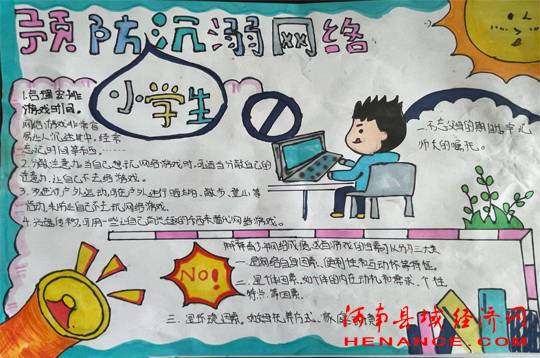 预防沉溺网络
小学生
1.合理安排
游戏时间。
网络游戏非常容
易让人沉迷其中，经常
忘记时间等东西……
2.分散注意力，当自己想玩网络游戏时，可适当分散自己的
注意力，让自己不去络游戏。
3.多进行户外运动，可在户外进行跑步、散步、登山等
活动来防止自己去玩网络游戏。
4.兴趣转移，可用一些让自己感兴趣的东西来替代网络游戏。
一、不忘父母的期盼，牢记
师长的嘱托。
网络成瘾，或者游戏的因素可以分为三大类
一、是网络自身因素，便利性和互动性等特征。
NO!
二、是个体因素，如个体的内在动机和需求、个性
特点等因素。
三、是环境因素，如父母教养方式、
河南县域经济网
HENANCE.COM